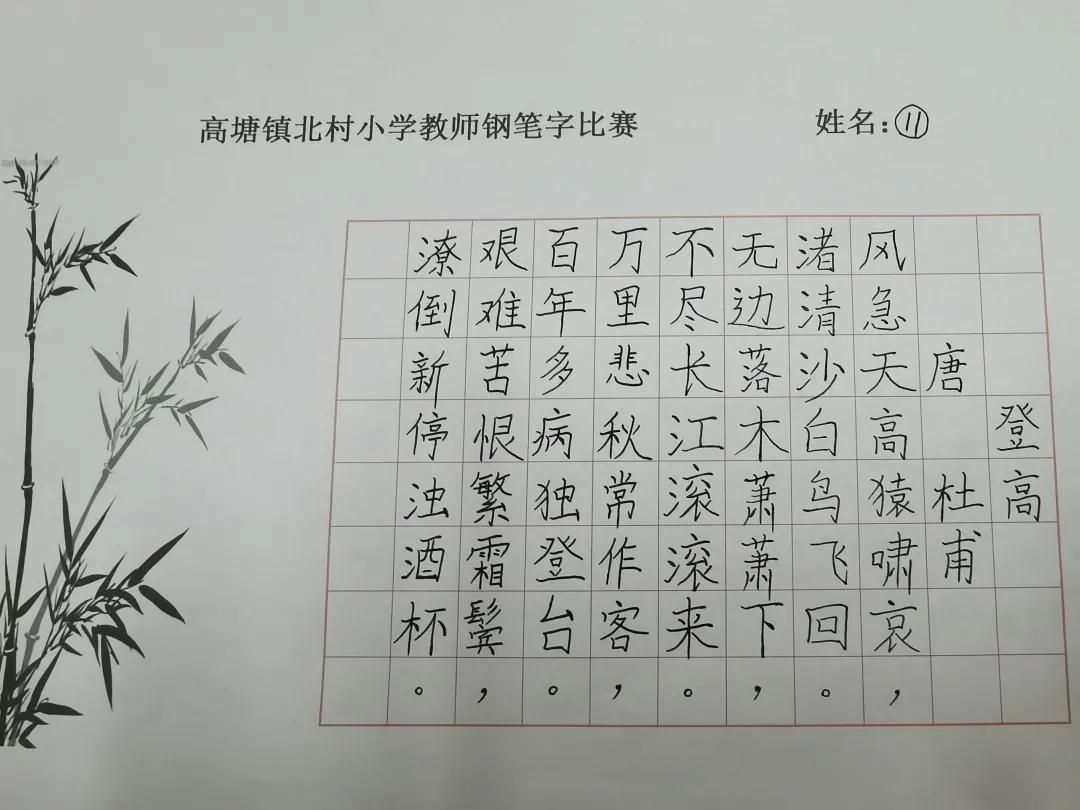 高塘镇北村小学教师钢笔字比赛
姓名：11
登高
唐 杜甫
风急天高猿啸哀，
渚清沙白鸟飞回。
无边落木萧萧下，
不尽长江滚滚来。
万里悲秋常作客，
百年多病独登台。
艰难苦恨繁霜鬓，
潦倒新停浊酒杯。